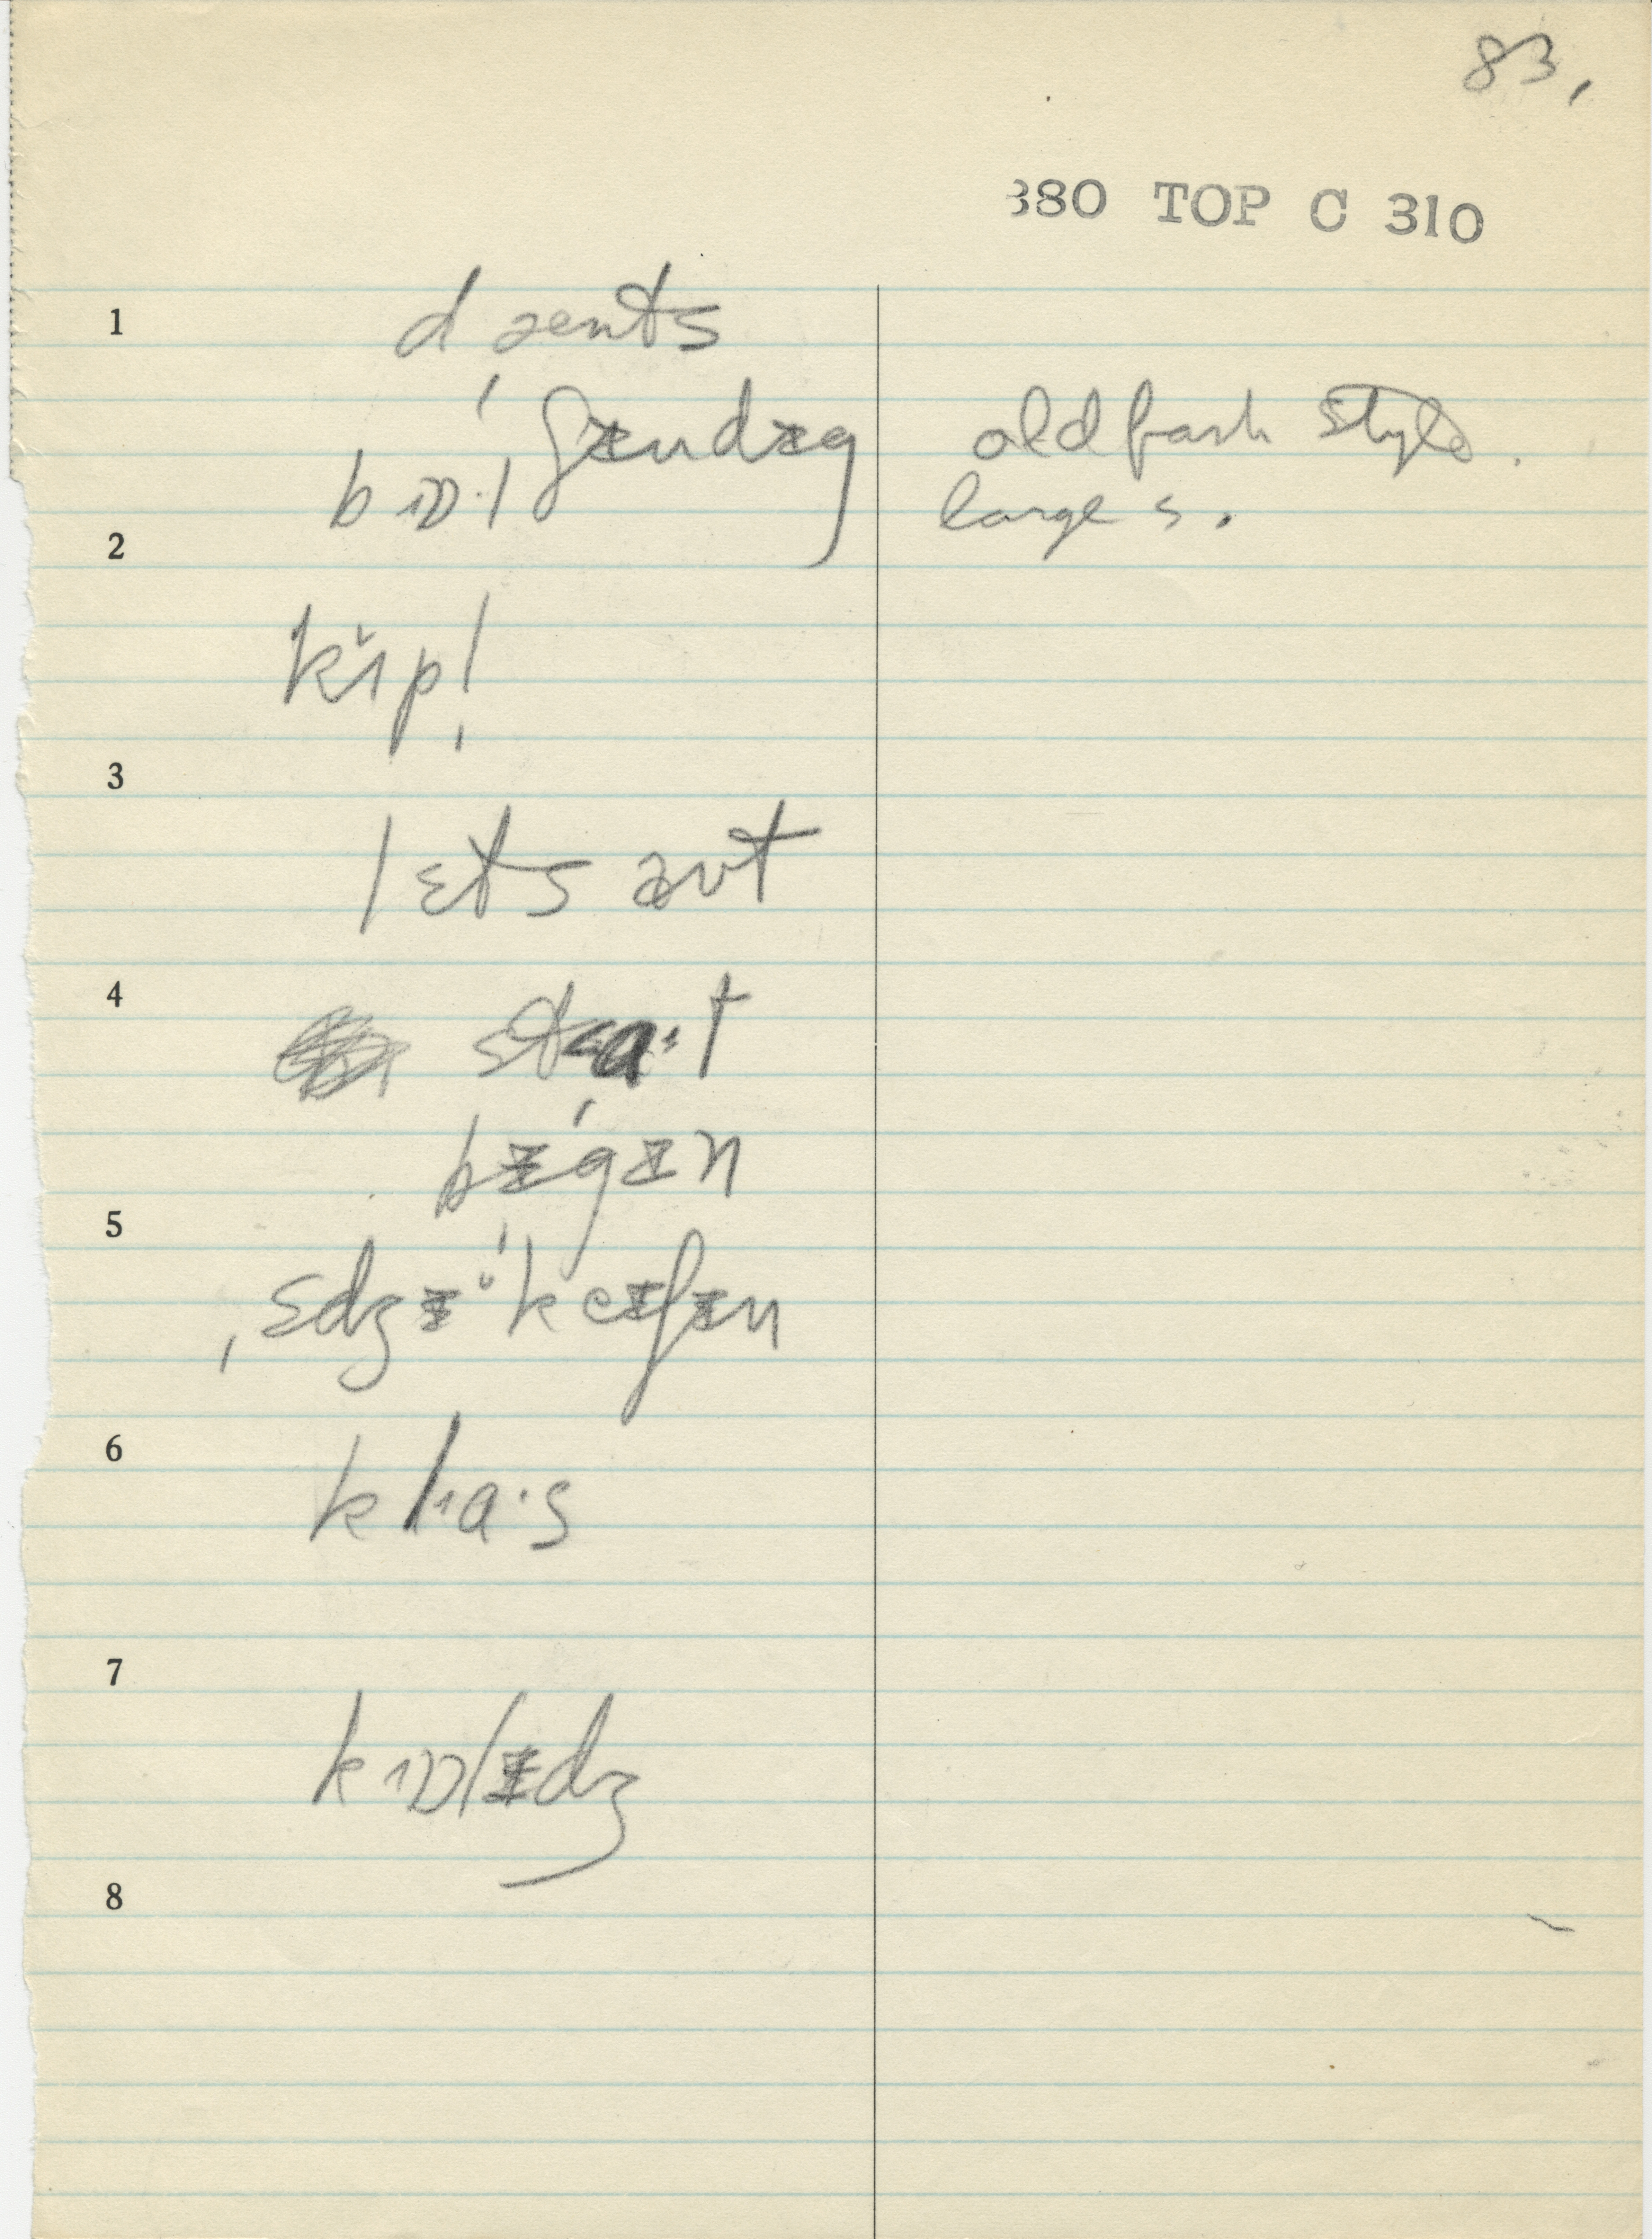 83,
380 TOP C 310
1
d æents
ˌbɒ·l ʃɪndɪg old fash style.
2
large s.
kɪ̆p!
3
lɛts aʊt
4
sta·t
bɪˈgɪn
5
ˌɛdʒɪˈkeɪʃɪn
6
kla·s
7
kɒlɪdʒ
8